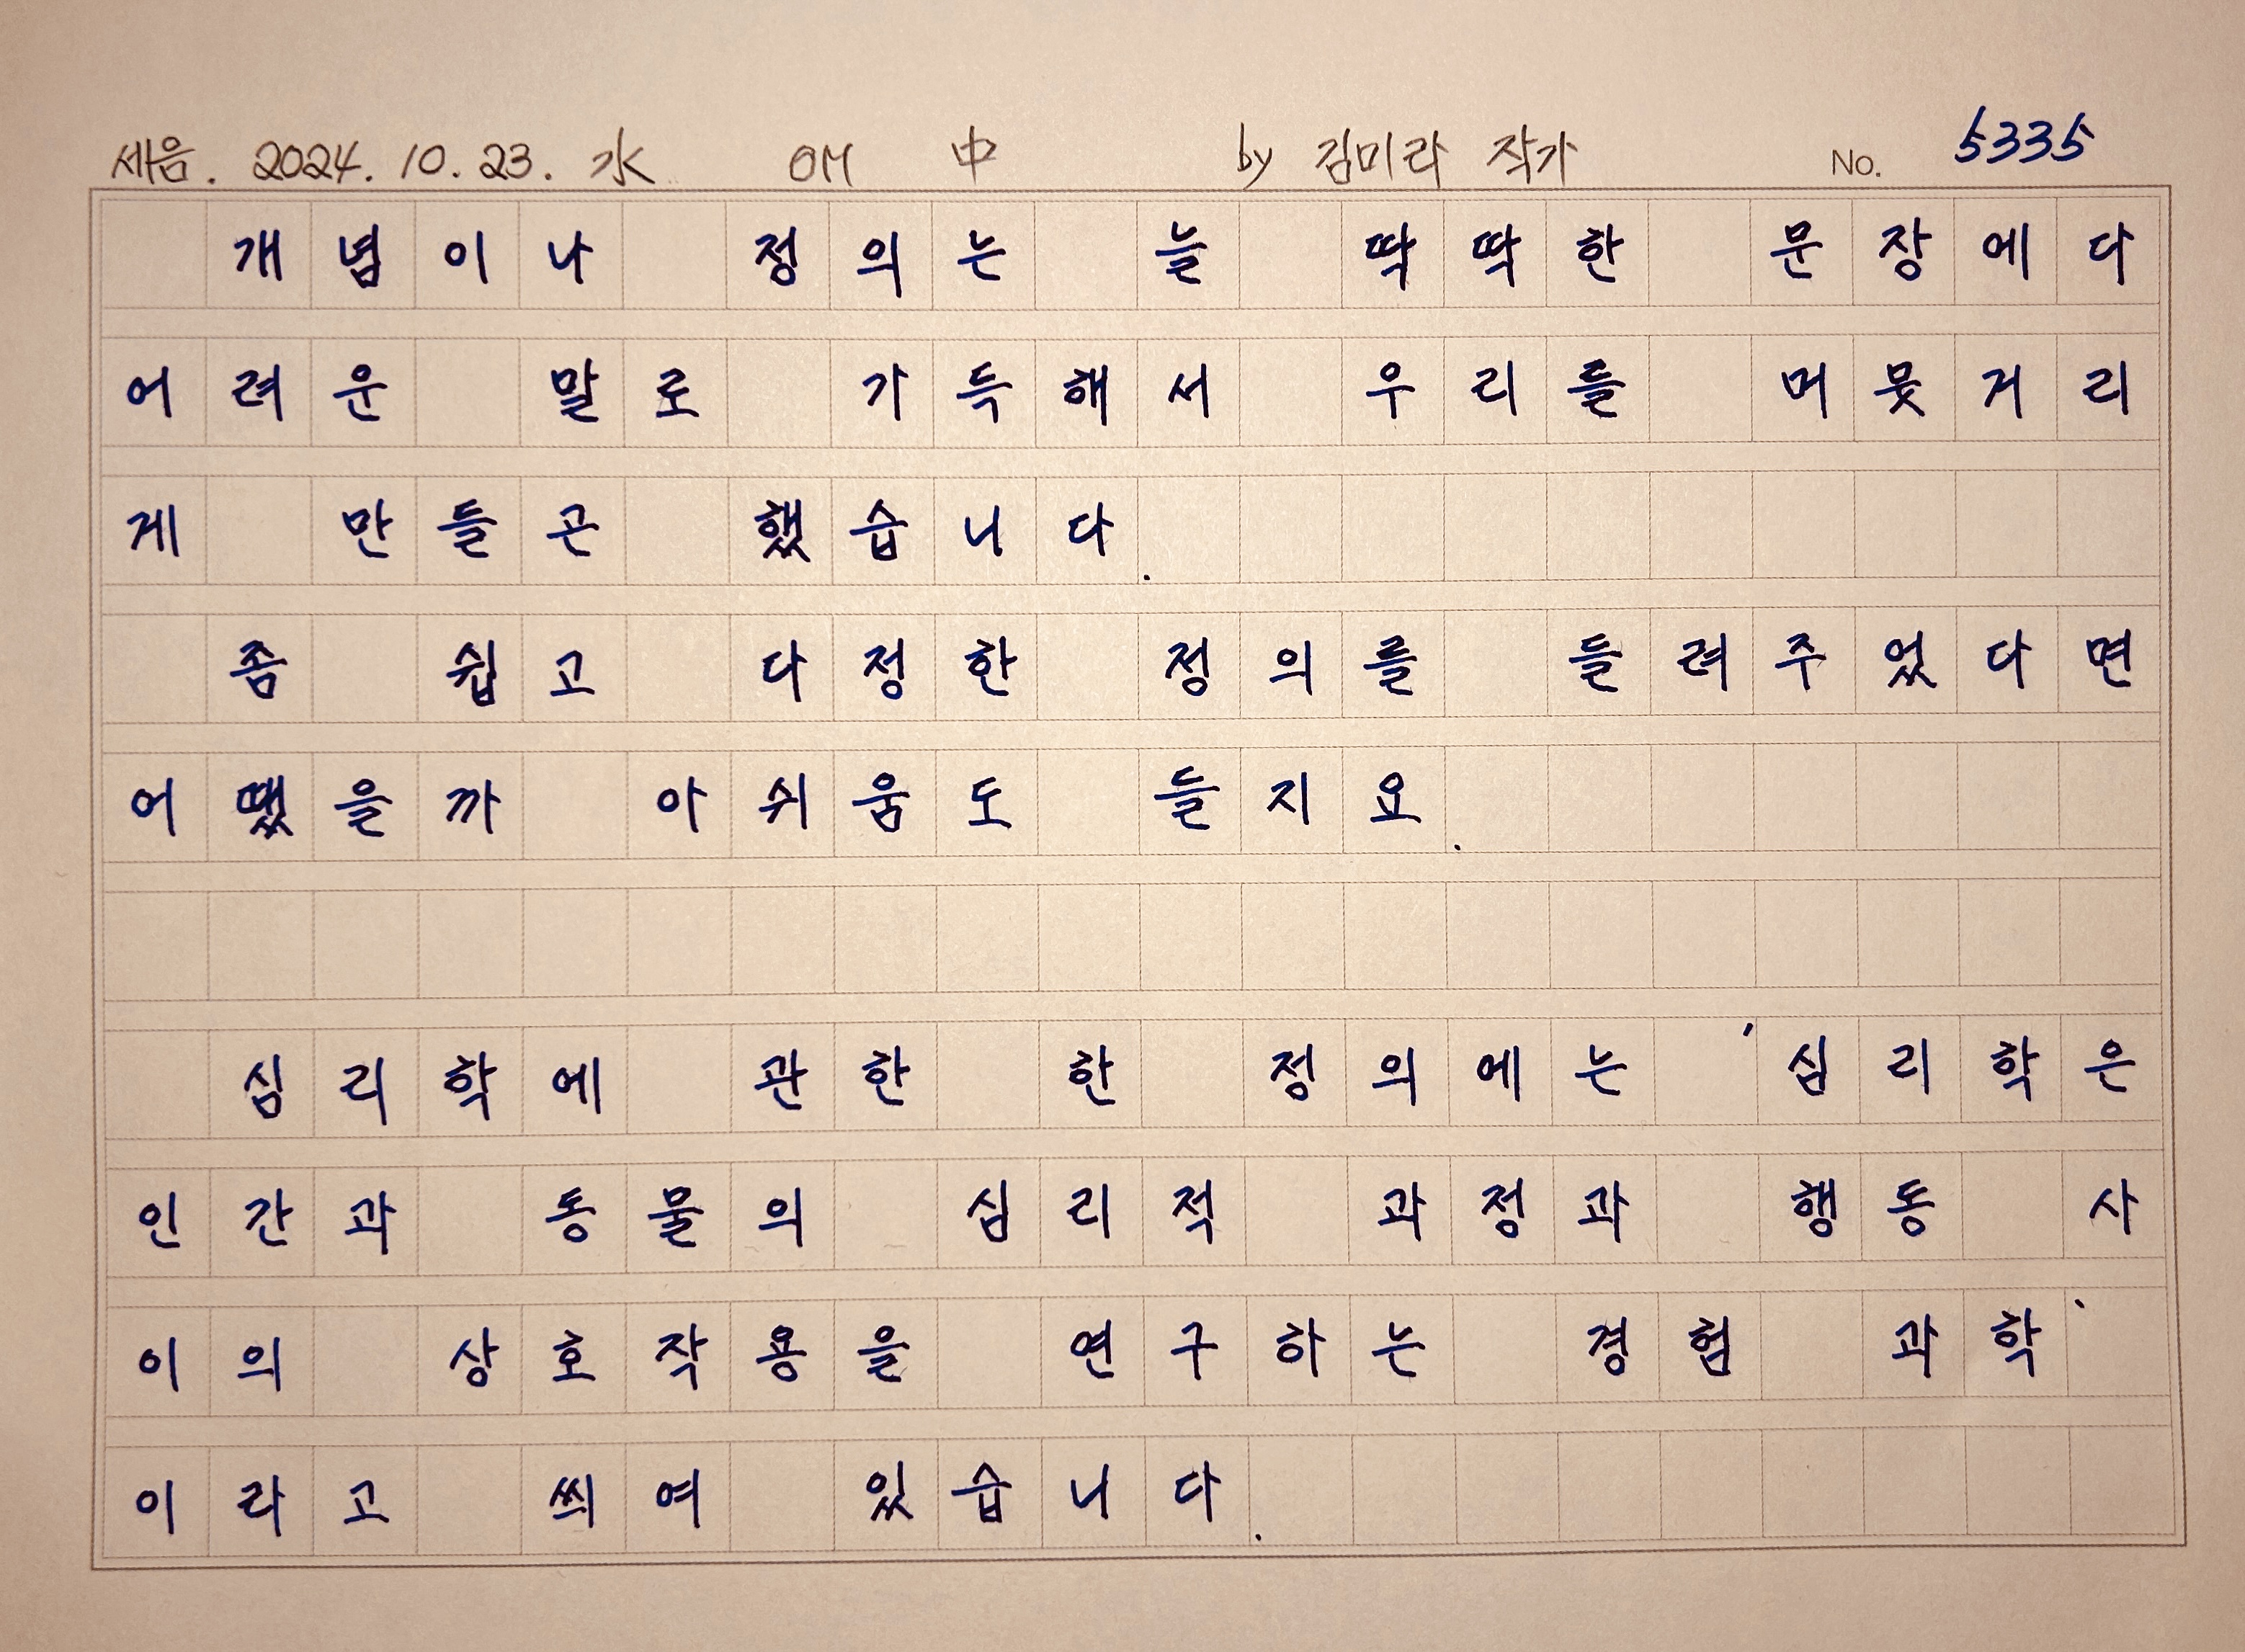 세음. 2024. 10. 23. 水 OM 中 by 김미라 작가 No. 5335
개념이나 정의는 늘 딱딱한 문장에다
어려운 말로 가득해서 우리들 머뭇거리
게 만들곤 했습니다.
좀 쉽고 다정한 정의를 들려주었다면
어땠을까 아쉬움도 들지요.
심리학에 관한 한 정의에는 '심리학은
인간과 동물의 심리적 과정과 행동 사
이의 상호작용을 연구하는 경험 과학'
이라고 씌여 있습니다.